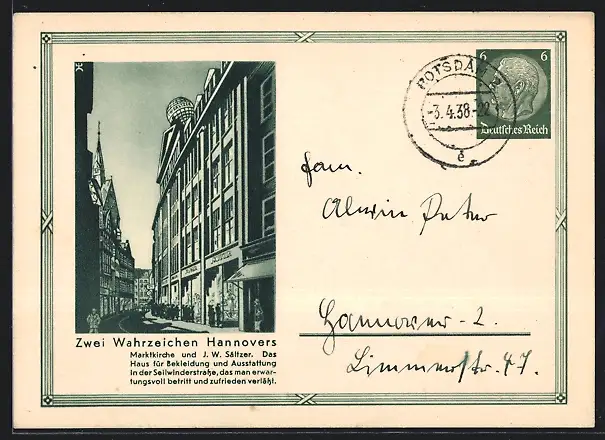 6 6
Deutsches Reich
POTSDAM 2
-3.4.38.-22
e
Fam.
Alwin Peter
Hannover-2.
Limmerstr. 47.
Zwei Wahrzeichen Hannovers
Marktkirche und J. W. Sältzer. Das
Haus für Bekleidung und Ausstattung
in der Seilwinderstraße, das man erwar-
tungsvoll betritt und zufrieden verläßt.